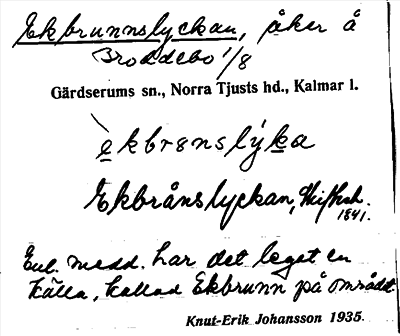 Ekbrunnslyckan, åker å
Broddebo 1/8
Gärdserums sn., Norra Tjusts hd., Kalmar l.
èkbrɵnslýka
Ekbrånslyckan, Skifteh.
1841.
Enl. medd. har det legat en
källa, kallad Ekbrunn på området
Knut-Erik Johansson 1935.